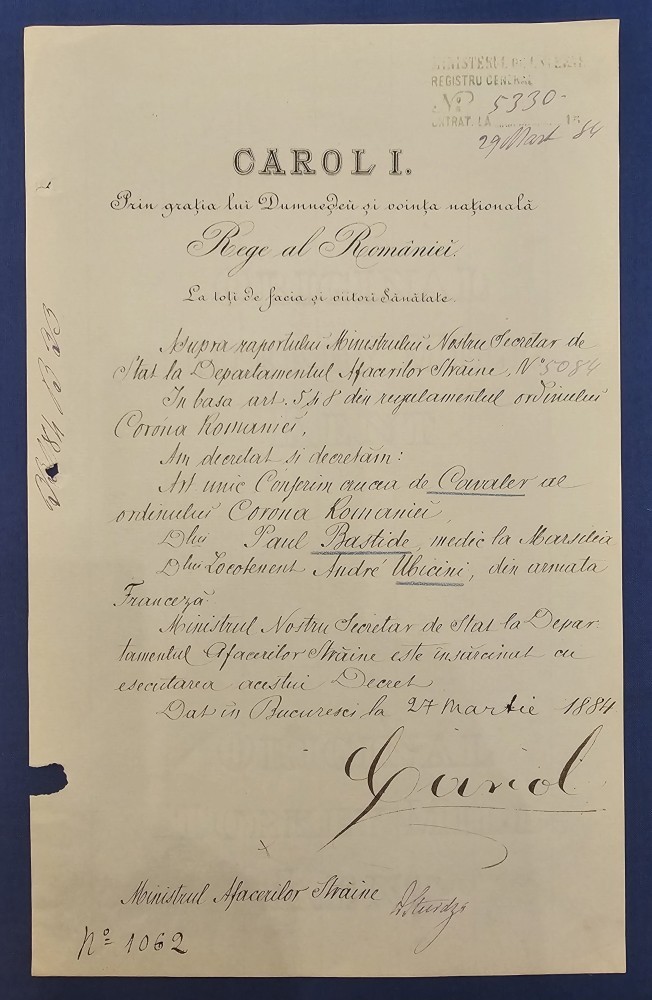 MINISTERUL DE EXTERNE
REGISTRU GENERAL
No 5330-
INTRAT. LA 18
29 Mart 84
CAROL I.
Prin grația lui Dumneḑeŭ și voința națională
Rege al Românieĭ.
La toți de facia și viitori Sănătate.
Asupra raportuluĭ Ministruluĭ Nostru Secretar de
Stat la Departamentul Afacerilor Străine, No 5084
In basa art. 5, 4 8 din regulamentul ordinuluĭ
Corona Romanieĭ,
Am decretat si decretăm:
Art unic Conferim crucea de Cavaler al
ordinuluĭ Corona Romanieĭ,
Dluĭ Paul Bastide, medic la Marsilia
Dluĭ Locotenent André Ubicini, din armata
Franceză.
Ministrul Nostru Secretar de Stat la Depar-
tamentul Afacerilor Străine este însărcinat cu
esecutarea acestuĭ Decret
Dat în Bucuresci la 27 Martie 1884
Carol
Ministrul Afacerilor Străine
D. Sturdza
No 1062